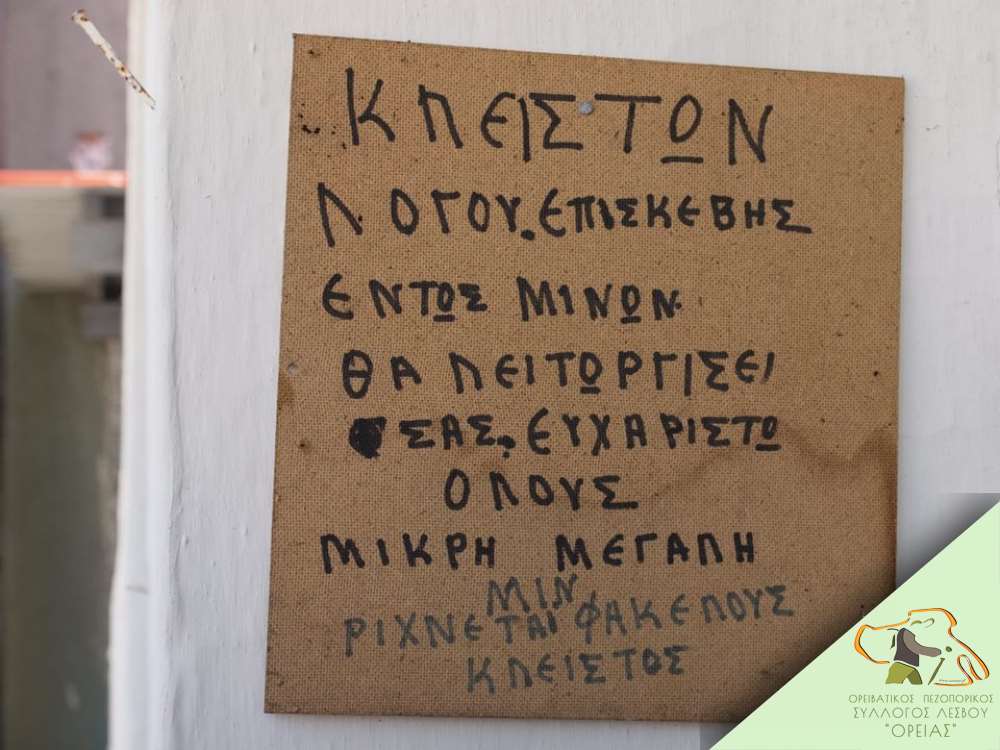 ΚΛΕΙΣΤΟΝ
ΛΟΓΟΥ.ΕΠΙΣΚΕΒΗΣ
ΕΝΤΟΣ ΜΙΝΟΝ
ΘΑ ΛΕΙΤΟΡΓΙΣΕΙ
ΣΑΣ. ΕΥΧΑΡΙΣΤΟ
ΟΛΟΥΣ
ΜΙΚΡΗ ΜΕΓΑΛΗ
ΜΙΝ
ΡΙΧΝΕΤΑΙ ΦΑΚΕΛΟΥΣ
ΚΛΕΙΣΤΟΣ
ΟΡΕΙΒΑΤΙΚΟΣ ΠΕΖΟΠΟΡΙΚΟΣ
ΣΥΛΛΟΓΟΣ ΛΕΣΒΟΥ
"ΟΡΕΙΑΣ"